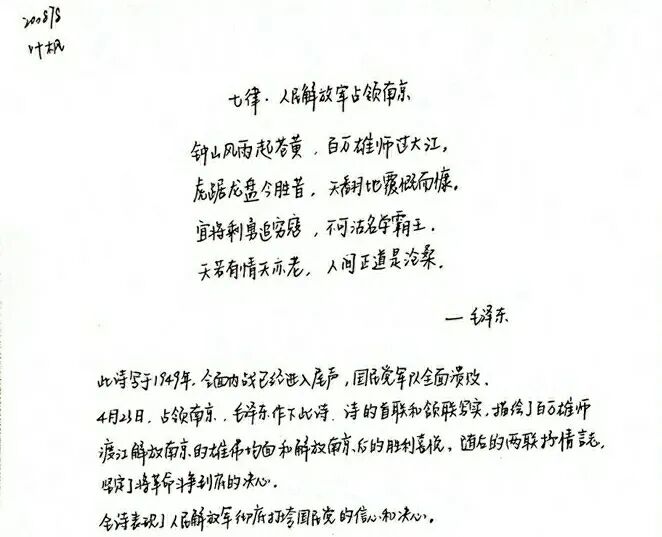 叶枫
七律·人民解放军占领南京
钟山风雨起苍黄，百万雄师过大江。
虎踞龙盘今胜昔，天翻地覆慨而慷。
宜将剩勇追穷寇，不可沽名学霸王。
天若有情天亦老，人间正道是沧桑。
—毛泽东
此诗写于1949年，全面内战已经进入尾声，国民党军队全面溃败、
4月23日，占领南京，毛泽东作下此诗。诗的首联和颔联写实，描绘了百万雄师
渡江解放南京的雄伟场面和解放南京后的胜利喜悦，随后的两联抒情言志，
坚定了将革命斗争到底的决心。
全诗表现了人民解放军彻底打垮国民党的信心和决心。